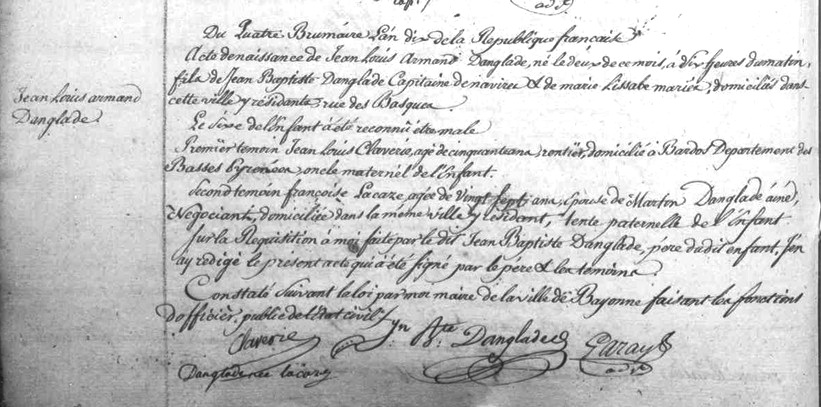 adj.t
Du Quatre Brumaire L'an dix de la Republique française
Acte de naissance de Jean Louis Armand Danglade, né le deux de ce mois, à Dix heures du matin,
fils de Jean Baptiste Danglade Capitaine de navires & de marie Lissabe mariés, domiciliés dans
cette ville y résidants rue des Basques
Jean Louis armand
Danglade
Le Sexe de l'Enfant à été reconnû être male
Premier temoin Jean Louis Claverie, agé de cinquante ans, rentier, domicilié à Bardos Departement des
Basses Pyrenées, oncle maternel de l'Enfant.
Second temoin françoise Lacaze, agée de Vingt Sept ans, Epouse de Danglade ainé,
Negociant, domiciliée dans la même ville y résidant, tente paternelle de l'Enfant
Sur la Requisition à moi faite par le dit Jean Baptiste Danglade, pere dudit enfant. J'en
ay redigé le present acte qui à été signé par le pére & les témoins
Constaté Suivant la loi par moi maire de la ville de Bayonne faisant les fonctions
D'officier public de l'état civil
Claverie Jn Bte Danglade Garay
Danglade née lacaze adjt